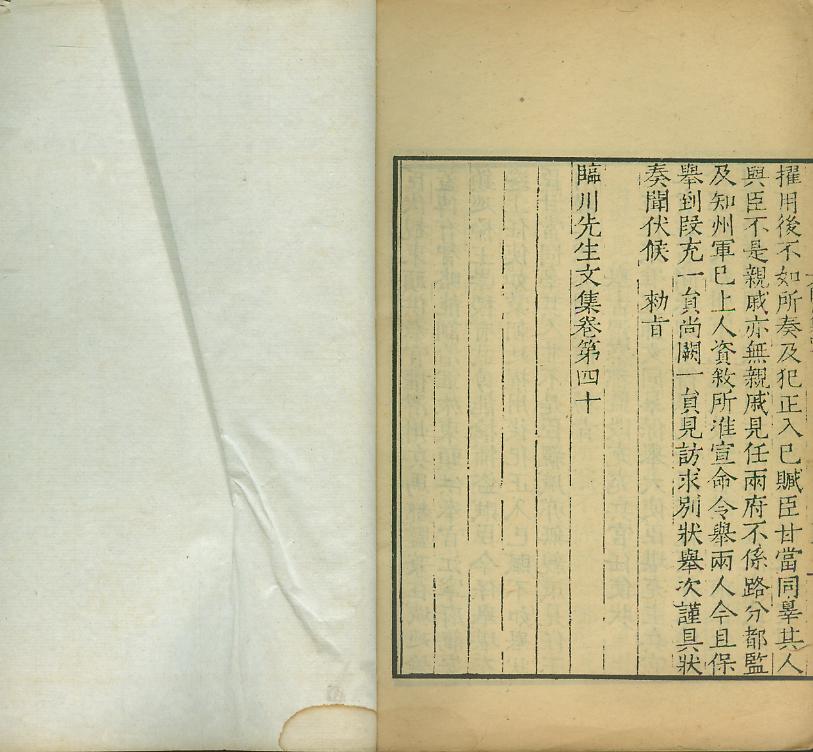 擢用後不如所奏及犯正入已贓臣甘當同辠其人
與臣不是親戚亦無親戚見任兩府不係路分都監
及知州軍已上人資敘所准宣命令舉兩人今且保
舉到段充一員尚闕一員見訪求別狀舉次謹具狀
奏聞伏候　勑旨
臨川先生文集卷第四十